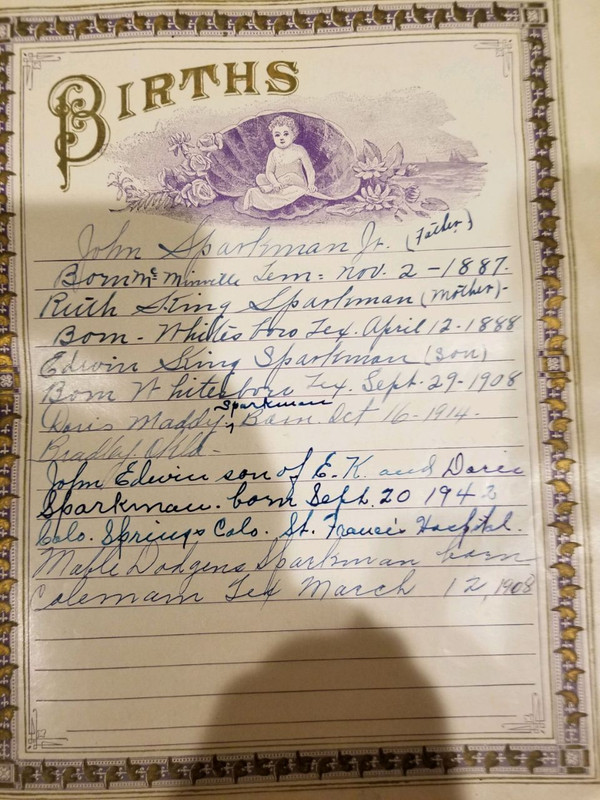 BIRTHS
John Sparkman Jr. (Father)
Born Mc Minville Tenn: Nov. 2 - 1887.
Ruth King Sparkman (Mother)-
Born - Whitesboro Tex. April 12 - 1888
Edwin King Sparkman (Son)
Born Whitesboro Tex. Sept. - 29 - 1908
Sparkman
Doris Maddy Born. Oct 16 - 1914.
Bradley, Okla -
John Edwin son of E. K. and Doris
Sparkman. born Sept. 20 1942
Colo. Springs Colo. St. Francis Hospital.
Mable Dodgens Sparkman born
Colemam Tex March 12, 1908